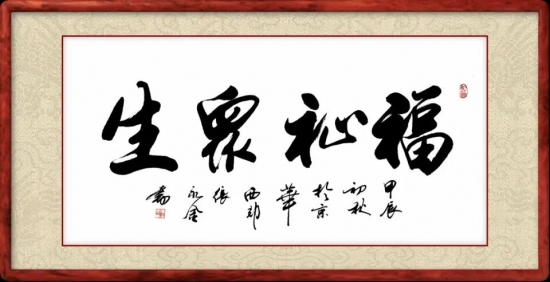 福祉眾生
甲辰
初秋
於京
華
西郊
張
永
書